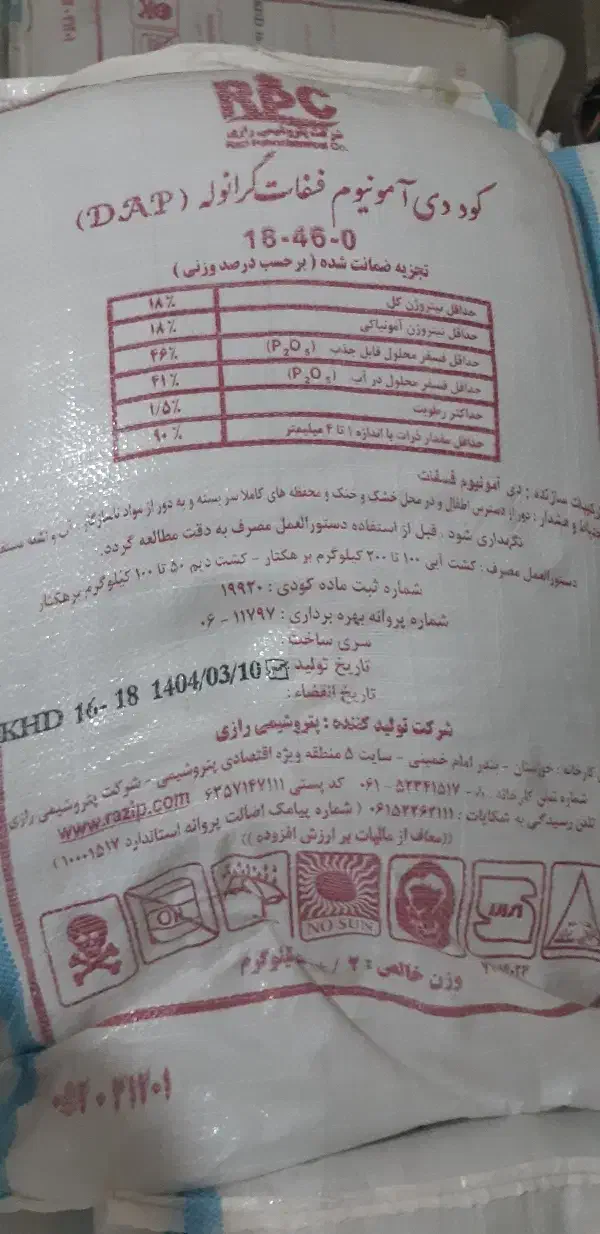 RPC
شرکت پتروشیمی رازی
Razi Petrochemical Co.
کود دی آمونیوم فسفات گرانوله (DAP)
18-46-0
تجزیه ضمانت شده (برحسب درصد وزنی)
حداقل نیتروژن کل ۱۸٪
حداقل نیتروژن آمونیاکی ۱۸٪
حداقل فسفر محلول قابل جذب (P₂O₅) ۴۶٪
حداقل فسفر محلول در آب (P₂O₅) ۴۱٪
حداکثر رطوبت ۱/۵٪
حداقل مقدار ذرات با اندازه ۱ تا ۴ میلیمتر ۹۰٪
ترکیبات سازنده : دی آمونیوم فسفات
احتیاط و هشدار : دور از دسترس اطفال و در محل خشک و خنک و محفظه های کاملا سر بسته و به دور از مواد ناسازگار، آب و اشعه
نگهداری شود . قبل از استفاده دستورالعمل مصرف به دقت مطالعه گردد.
دستورالعمل مصرف : کشت آبی ۱۰۰ تا ۲۰۰ کیلوگرم بر هکتار - کشت دیم ۵۰ تا ۱۰۰ کیلوگرم برهکتار
شماره ثبت ماده کودی : ۱۹۹۲۰
شماره پروانه بهره برداری : ۱۱۷۹۷ - ۰۶
سری ساخت :
تاریخ تولید :
KHD 16-18 1404/03/10
تاریخ انقضاء :
شرکت تولید کننده : پتروشیمی رازی
کارخانه : خوزستان - بندر امام خمینی - سایت ۵ منطقه ویژه اقتصادی پتروشیمی - شرکت پتروشیمی رازی
شماره تلفن کارخانه ۵۲۳۴۱۵۱۷ - ۰۶۱ کد پستی ۶۳۵۷۱۴۷۱۱۱
www.razip.com
تلفن رسیدگی به شکایات : ۰۶۱۵۲۲۶۲۱۱۱ (شماره پیامک اصالت پروانه استاندارد ۱۰۰۰۱۵۱۷)
((معاف از مالیات بر ارزش افزوده))
OK
NO SUN
وزن خالص : کیلوگرم